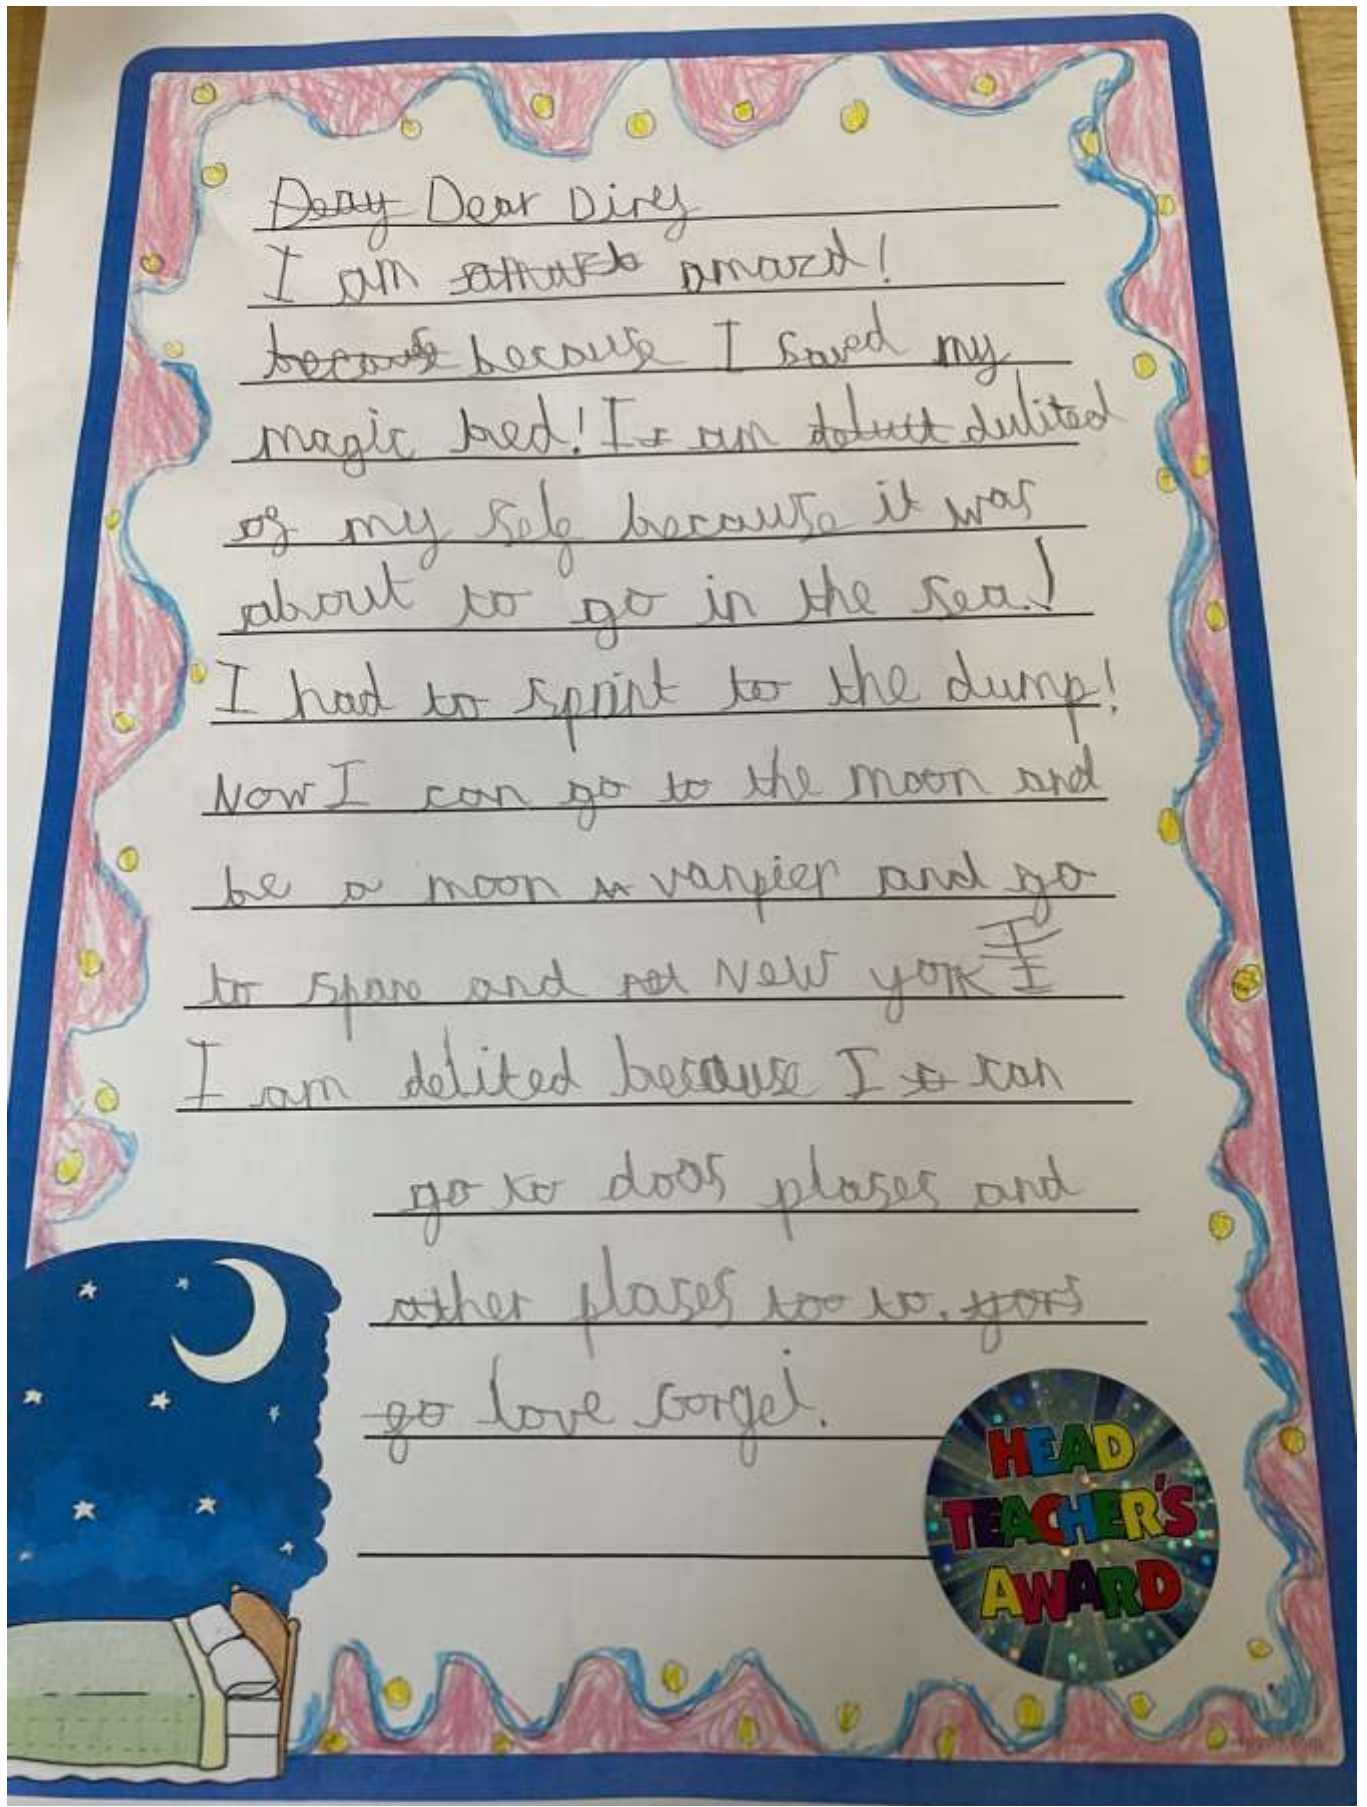 Deay Dear Direy
I am amazd!
because because I saved my
magic bed! I am dulited
of my self because it was
about to go in the sea!
I had to sprint to the dump!
Now I can go to the moon and
be a moon vanpier and go
to spase and New york I
I am delited because I can
go to doos plases and
other plases too to.
go love Gorgei.
HEAD
TEACHER'S
AWARD